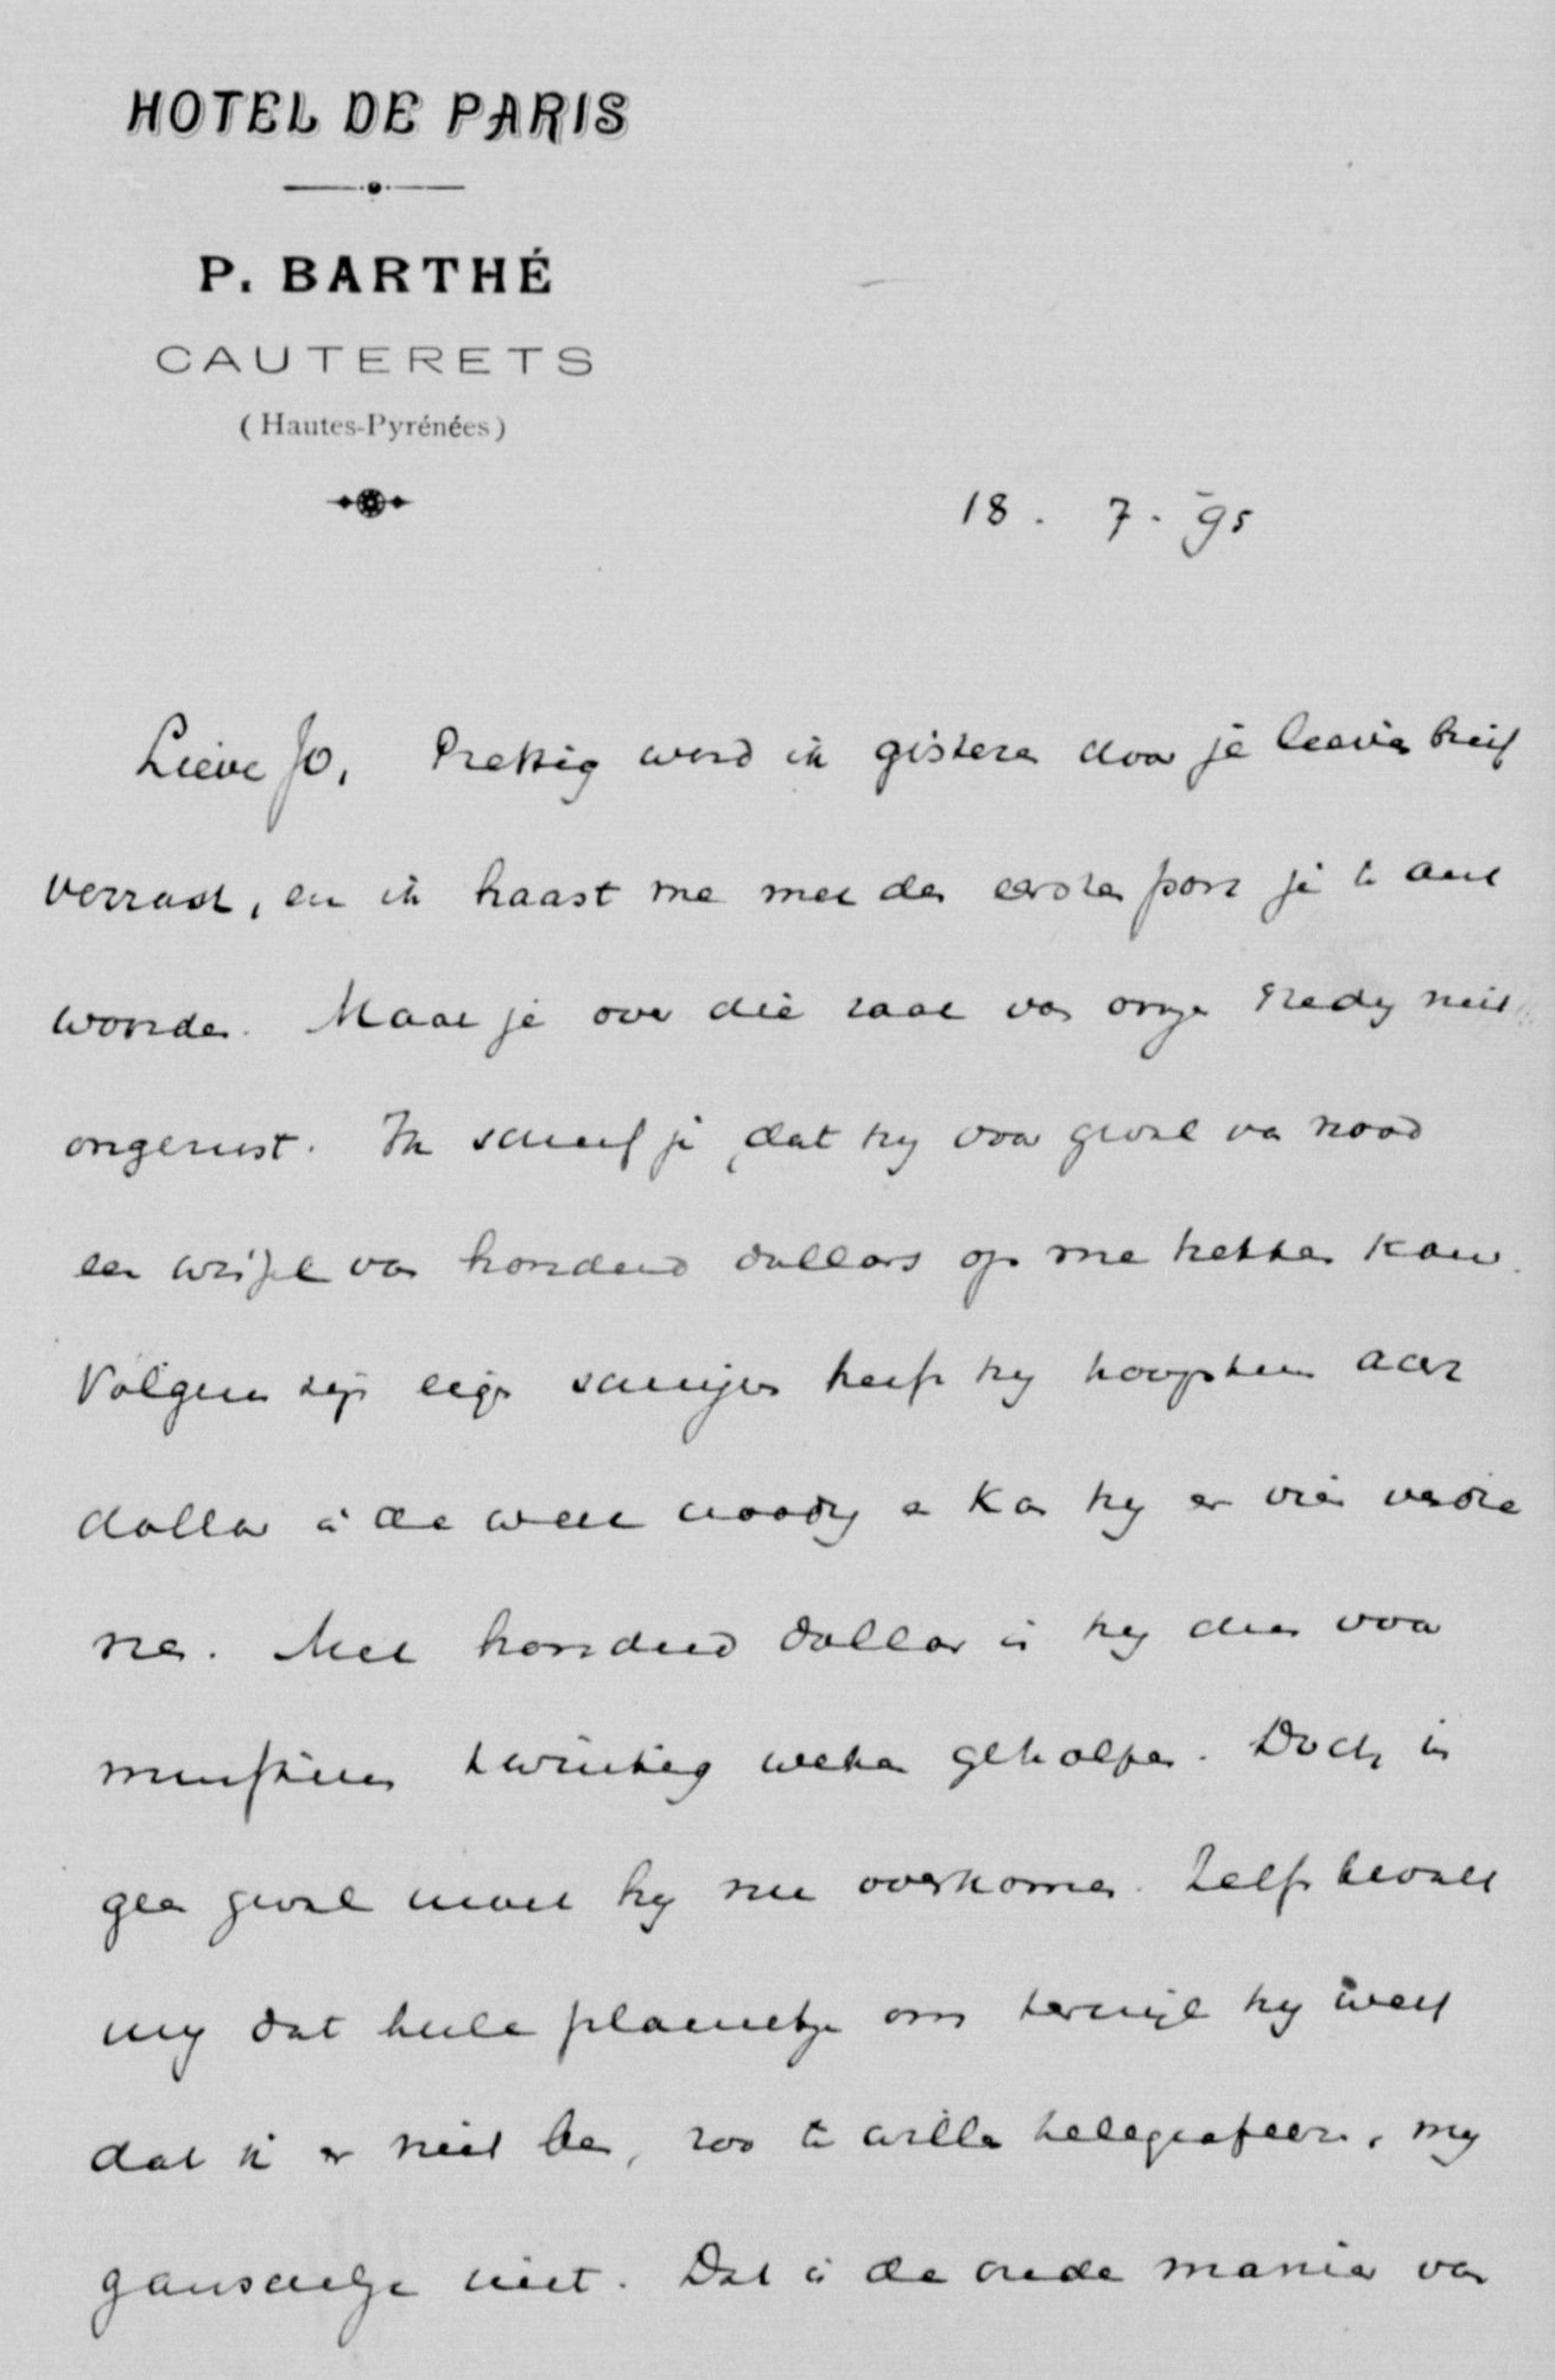 HOTEL DE PARIS
P. BARTHÉ
CAUTERETS
(Hautes-Pyrénées)
18. 7. 95
Lieve Jo, Prettig werd ik gisteren door je brief
verrast, en ik haast me met den eersten post je te ant
woorden. Maak je over die zaak van onzen niet
ongerust. Ik schreef je, dat hy voor geval van nood
een wissel van honderd dollars op me trekken kan.
Volgens zijn eigen schrijven heeft hy hoogstens acht
dollar in de week noodig en kan hy er vier verdie
nen. Met honderd dollar is hy dus voor
minstens twintig weken geholpen. Doch in
geen geval moet hy nu overkomen. Zelfs bevalt
my dat heele plannetje om terwijl hy weet
dat ik er niet ben, zoo te willen telegrafeeren, my
ganschelijk niet. Dat is de oude manier van